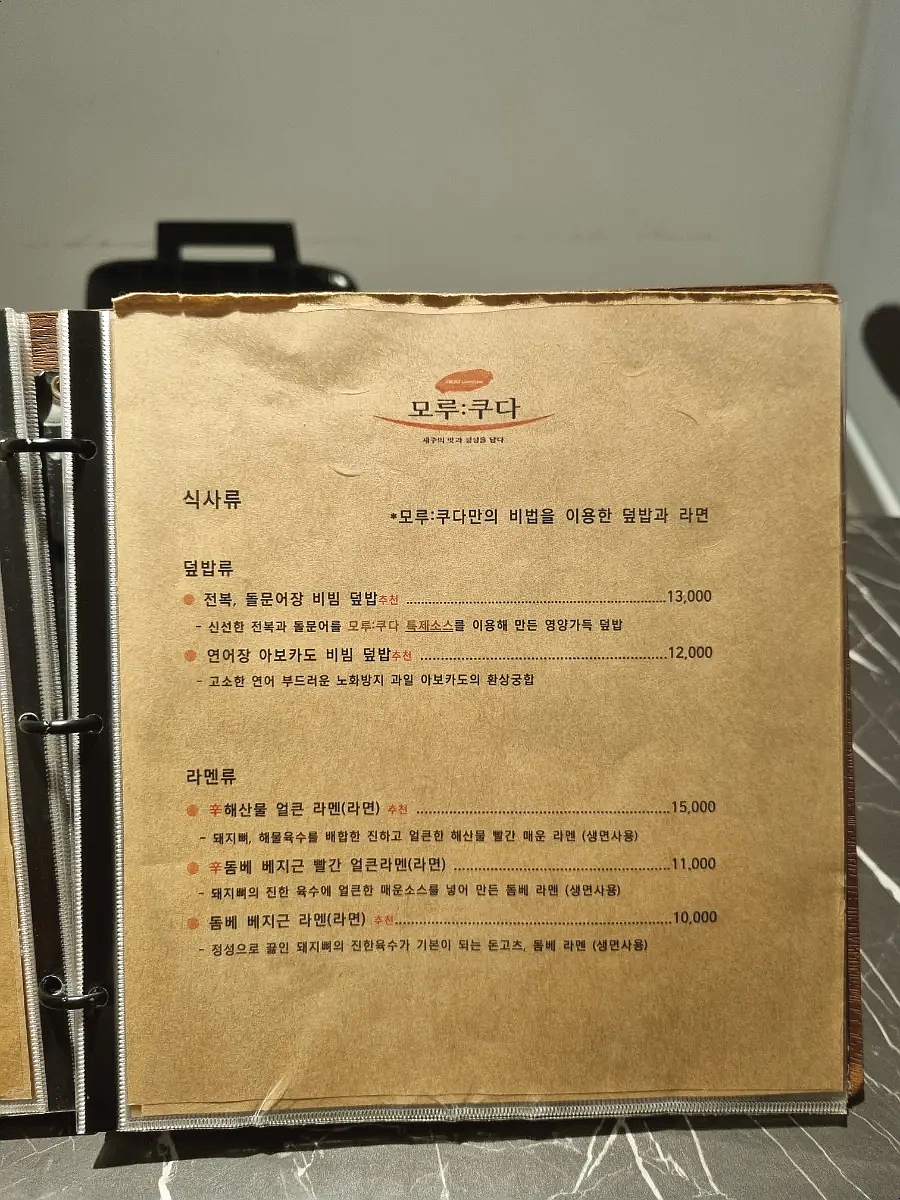 모루:쿠다
식사류
*모루:쿠다만의 비법을 이용한 덮밥과 라면
덮밥류
전복, 돌문어장 비빔 덮밥추천 13,000
- 신선한 전복과 돌문어를 모루:쿠다 특제소스를 이용해 만든 영양가득 덮밥
연어장 아보카도 비빔 덮밥추천 12,000
- 고소한 연어 부드러운 노화방지 과일 아보카도의 환상궁합
라멘류
辛해산물 얼큰 라멘(라면) 추천 15,000
- 돼지뼈, 해물육수를 배합한 진하고 얼큰한 해산물 빨간 매운 라멘 (생면사용)
辛돔베 베지근 빨간 얼큰라멘(라면) 11,000
- 돼지뼈의 진한 육수에 얼큰한 매운소스를 넣어 만든 돔베 라멘 (생면사용)
돔베 베지근 라멘(라면) 추천 10,000
- 정성으로 끓인 돼지뼈의 진한육수가 기본이 되는 돈고츠, 돔베 라멘 (생면사용)